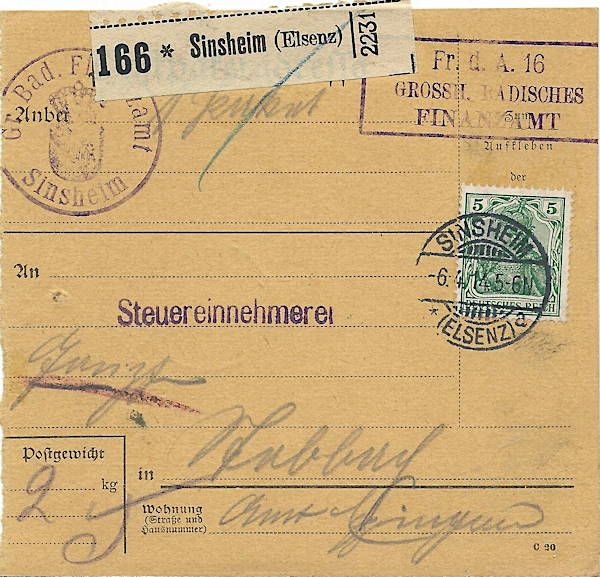 166 * Sinsheim (Elsenz) 2231
Gr. Bad. Finanzamt
Sinsheim
Fr. d. A. 16
GROSSH. BADISCHES
FINANZAMT
Anbei
Zum
Aufkleben
der
5 5
DEUTSCHES REICH
SINSHEIM
-6.4. 5-6N
* (ELSENZ) a
An
Steuereinnehmerei
Postgewicht
2 kg
in
Wohnung
(Straße und
Hausnummer)
Amt
C 20